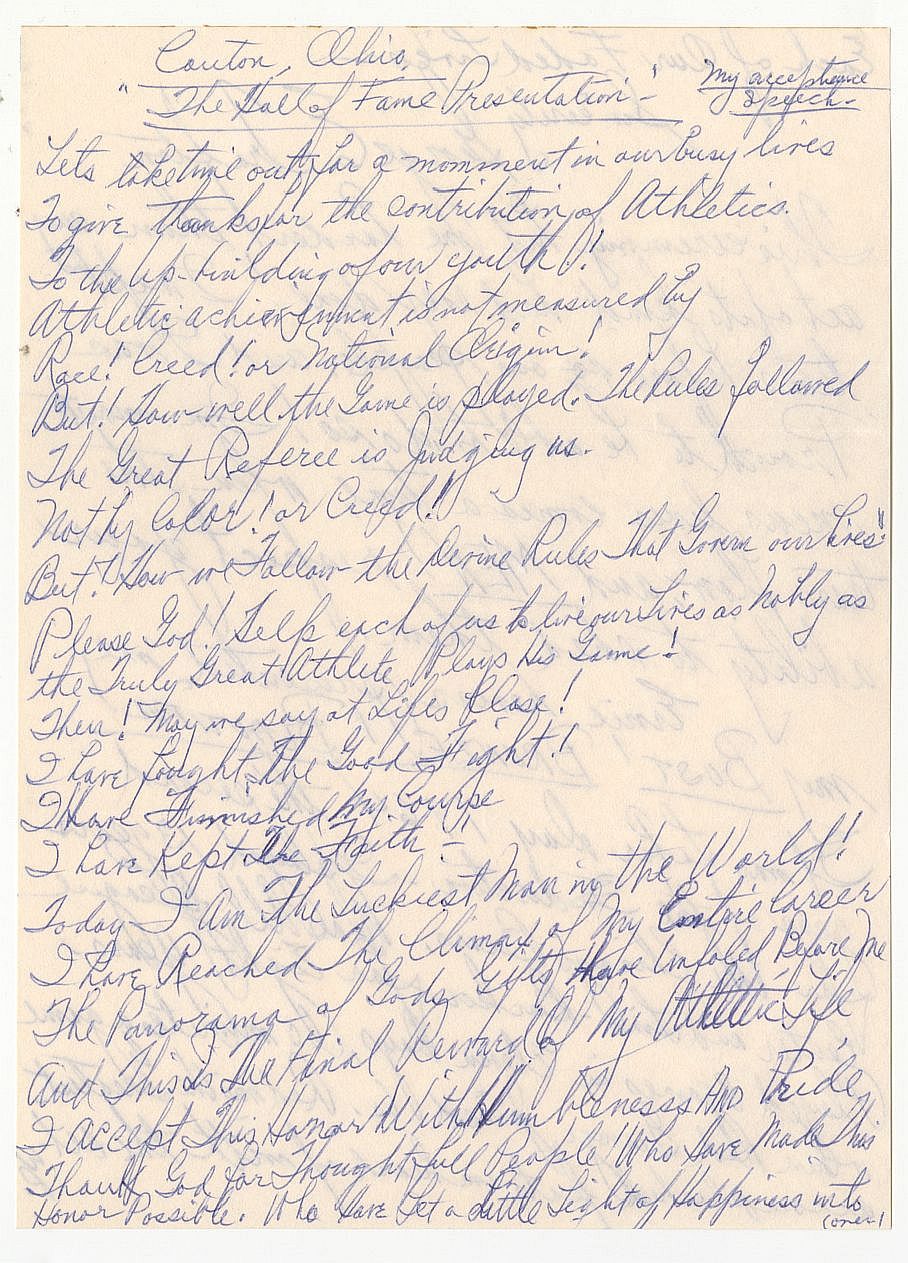 Canton, Ohio,
"The Hall of Fame Presentation" -
My acceptance
Speech -
Lets take time out, for a momment in our busy lives
To give thanks for the contribution of Athletics.
To the up-building of our youth!!
Athletic achievement is not measured by
Race! Creed! or National Origin!
But! How well the Game is played. The Rules followed
The Great Referee is Judging us.
Not by Color! or Creed!!
But! How we Follow the Devine Rules That Govern our lives"
Please God! Help each of us to live our Lives as Nobly as
the Truly Great Athlete Plays His Game!
Then! May we say at Lifes Close!
I have fought The Good Fight!!
I Have Finnished My Course
I have Kept The Faith -!
Today I Am The Luckiest Man in the World!
I have Reached The Climax of My Entire Career
The Panorama of Gods Gifts Have Unfoled Before Me
And This is The Final Reward Of My Athletic Life
I Accept This Honor With Humbleness And Pride,
Thank God for Thoughtfull People! Who Have Made This
Honor Possible. Who Have Let a Little Light of Happiness into
(over-)